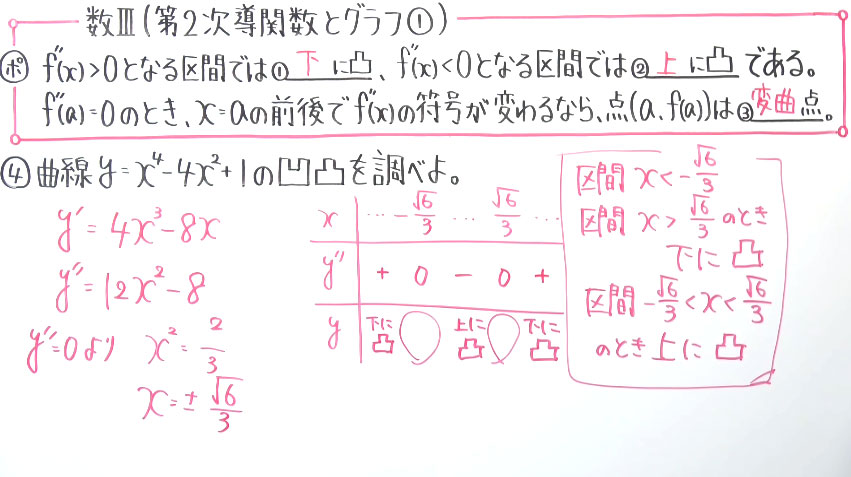 数Ⅲ(第2次導関数とグラフ①)
ポ f''(x)>0となる区間では①下に凸、f''(x)<0となる区間では②上に凸である。
f''(a)=0のとき、x=aの前後でf''(x)の符号が変わるなら、点(a,f(a))は③変曲点。
④曲線y=x⁴-4x²+1の凹凸を調べよ。
y'=4x³-8x
y''=12x²-8
y''=0より x²=2/3
x=±√6/3
x … -√6/3 … √6/3 …
y'' + 0 - 0 +
y 下に凸 上に凸 下に凸
区間 x<-√6/3
区間 x>√6/3 のとき
下に凸
区間 -√6/3<x<√6/3
のとき上に凸